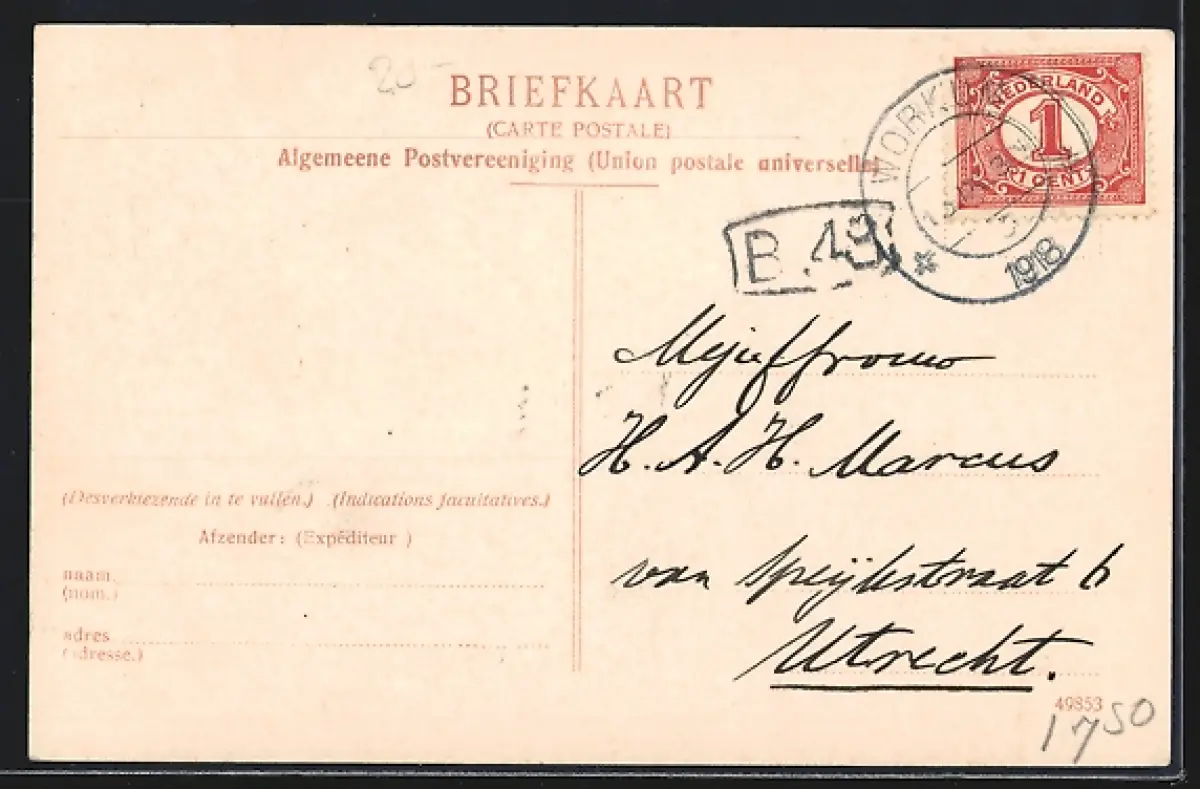 20-
BRIEFKAART
(CARTE POSTALE)
Algemeene Postvereeniging (Union postale universelle)
NEDERLAND
1
CENT
WORKUM
1918
B.43
Mejuffrouw
H. A. H. Marcus
van Speijkstraat 6
Utrecht.
(Desverkiezende in te vullen.) (Indications facultatives.)
Afzender: (Expéditeur )
naam.
(nom.)
adres
(adresse.)
49853
1750